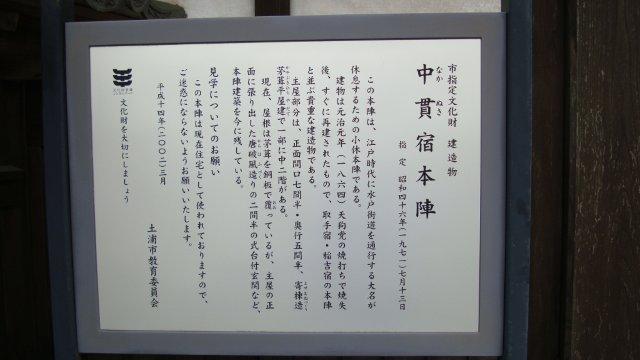 市指定文化財　建造物
中貫宿本陣
なか ぬき
指定　昭和四十六年(一九七一)七月十三日
この本陣は、江戸時代に水戸街道を通行する大名が
休息するための小休本陣である。
建物は元治元年(一八六四)天狗党の焼打ちで焼失
後、すぐに再建されたもので、取手宿・稲吉宿の本陣
と並ぶ貴重な建造物である。
主屋部分は、正面間口七間半・奥行五間半、寄棟造
茅葺平屋建で一部に中二階がある。
現在、屋根は茅葺を銅板で覆っているが、主屋の正
面に張り出した唐破風造りの二間半の式台付玄関など、
本陣建築を今に残している。
見学についてのお願い
この本陣は現在住宅として使われておりますので、
ご迷惑にならないようお願いいたします。
平成十四年(二〇〇二)三月
土浦市教育委員会
文化財を大切にしましょう